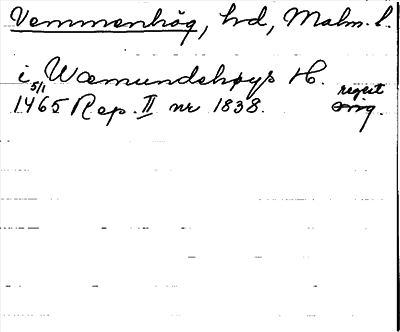 Vemmenhög, hd, Malm. l.
i Wæmundshøys H.
5/1 1465 Rep. II nr 1838. regest orig.